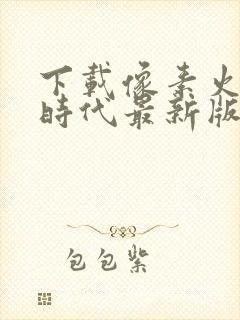 下載像素火
時代最新版
包包紫